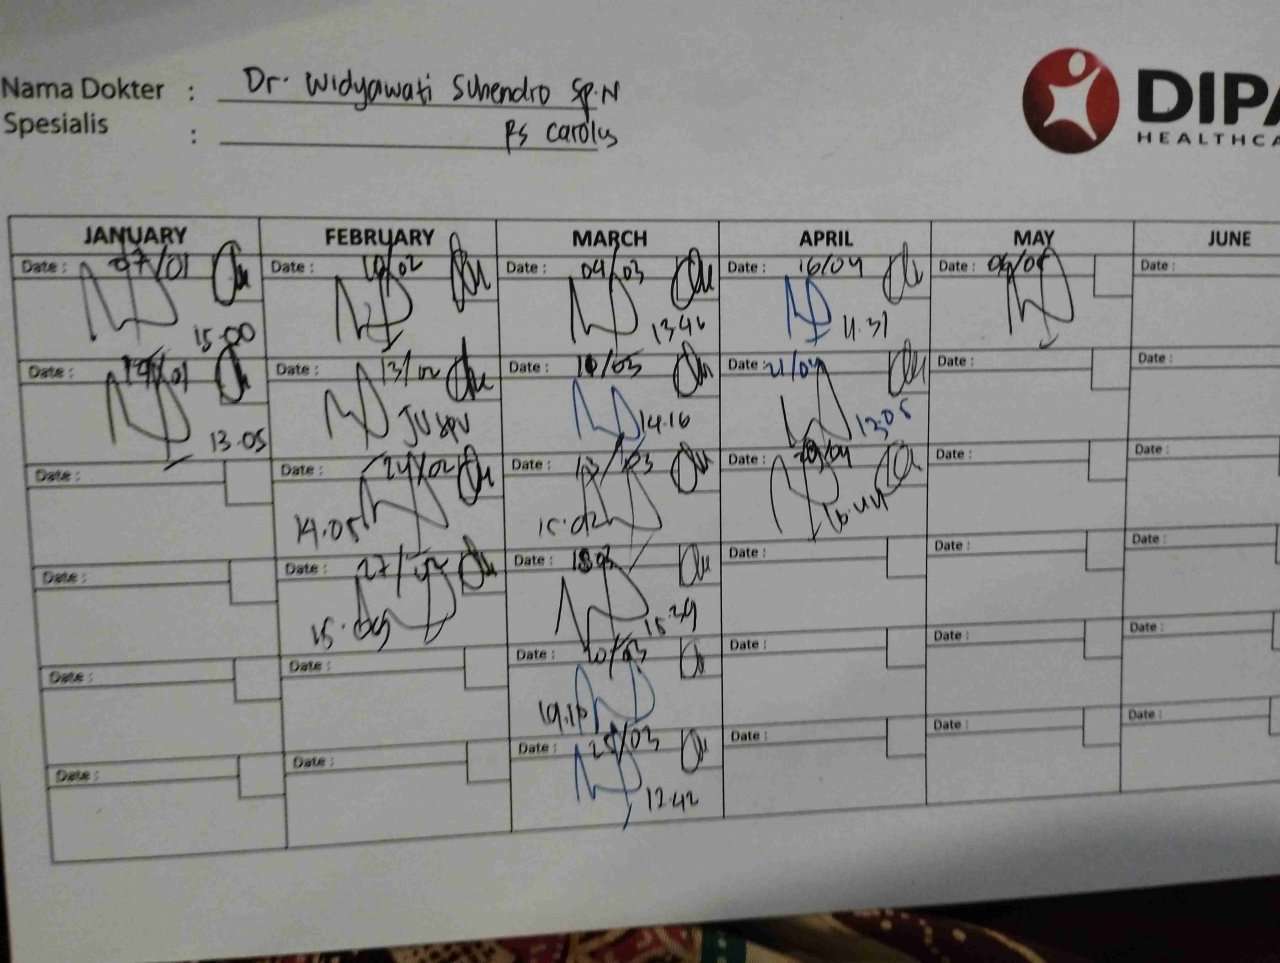 Nama Dokter : Dr. Widyawati Suhendro Sp.N
Spesialis : RS Carolus
DIPA
HEALTHCA
JANUARY FEBRUARY MARCH APRIL MAY JUNE
Date : 07/01 Date : 10/02 Date : 04/03 Date : 16/04 Date : Date :
15.00 13.46 11.31
Date : Date : 13/02 Date : Date : 21/04 Date : Date :
13.05 14.16 13.05
Date : Date : 24/02 Date : 13/03 Date : Date : Date :
14.05 15.02 16.44
Date : Date : 27/02 Date : Date : Date : Date :
15.09 15.29
Date : Date : Date : Date : Date : Date :
Date : Date : Date : 25/03 Date : Date : Date :
12.42